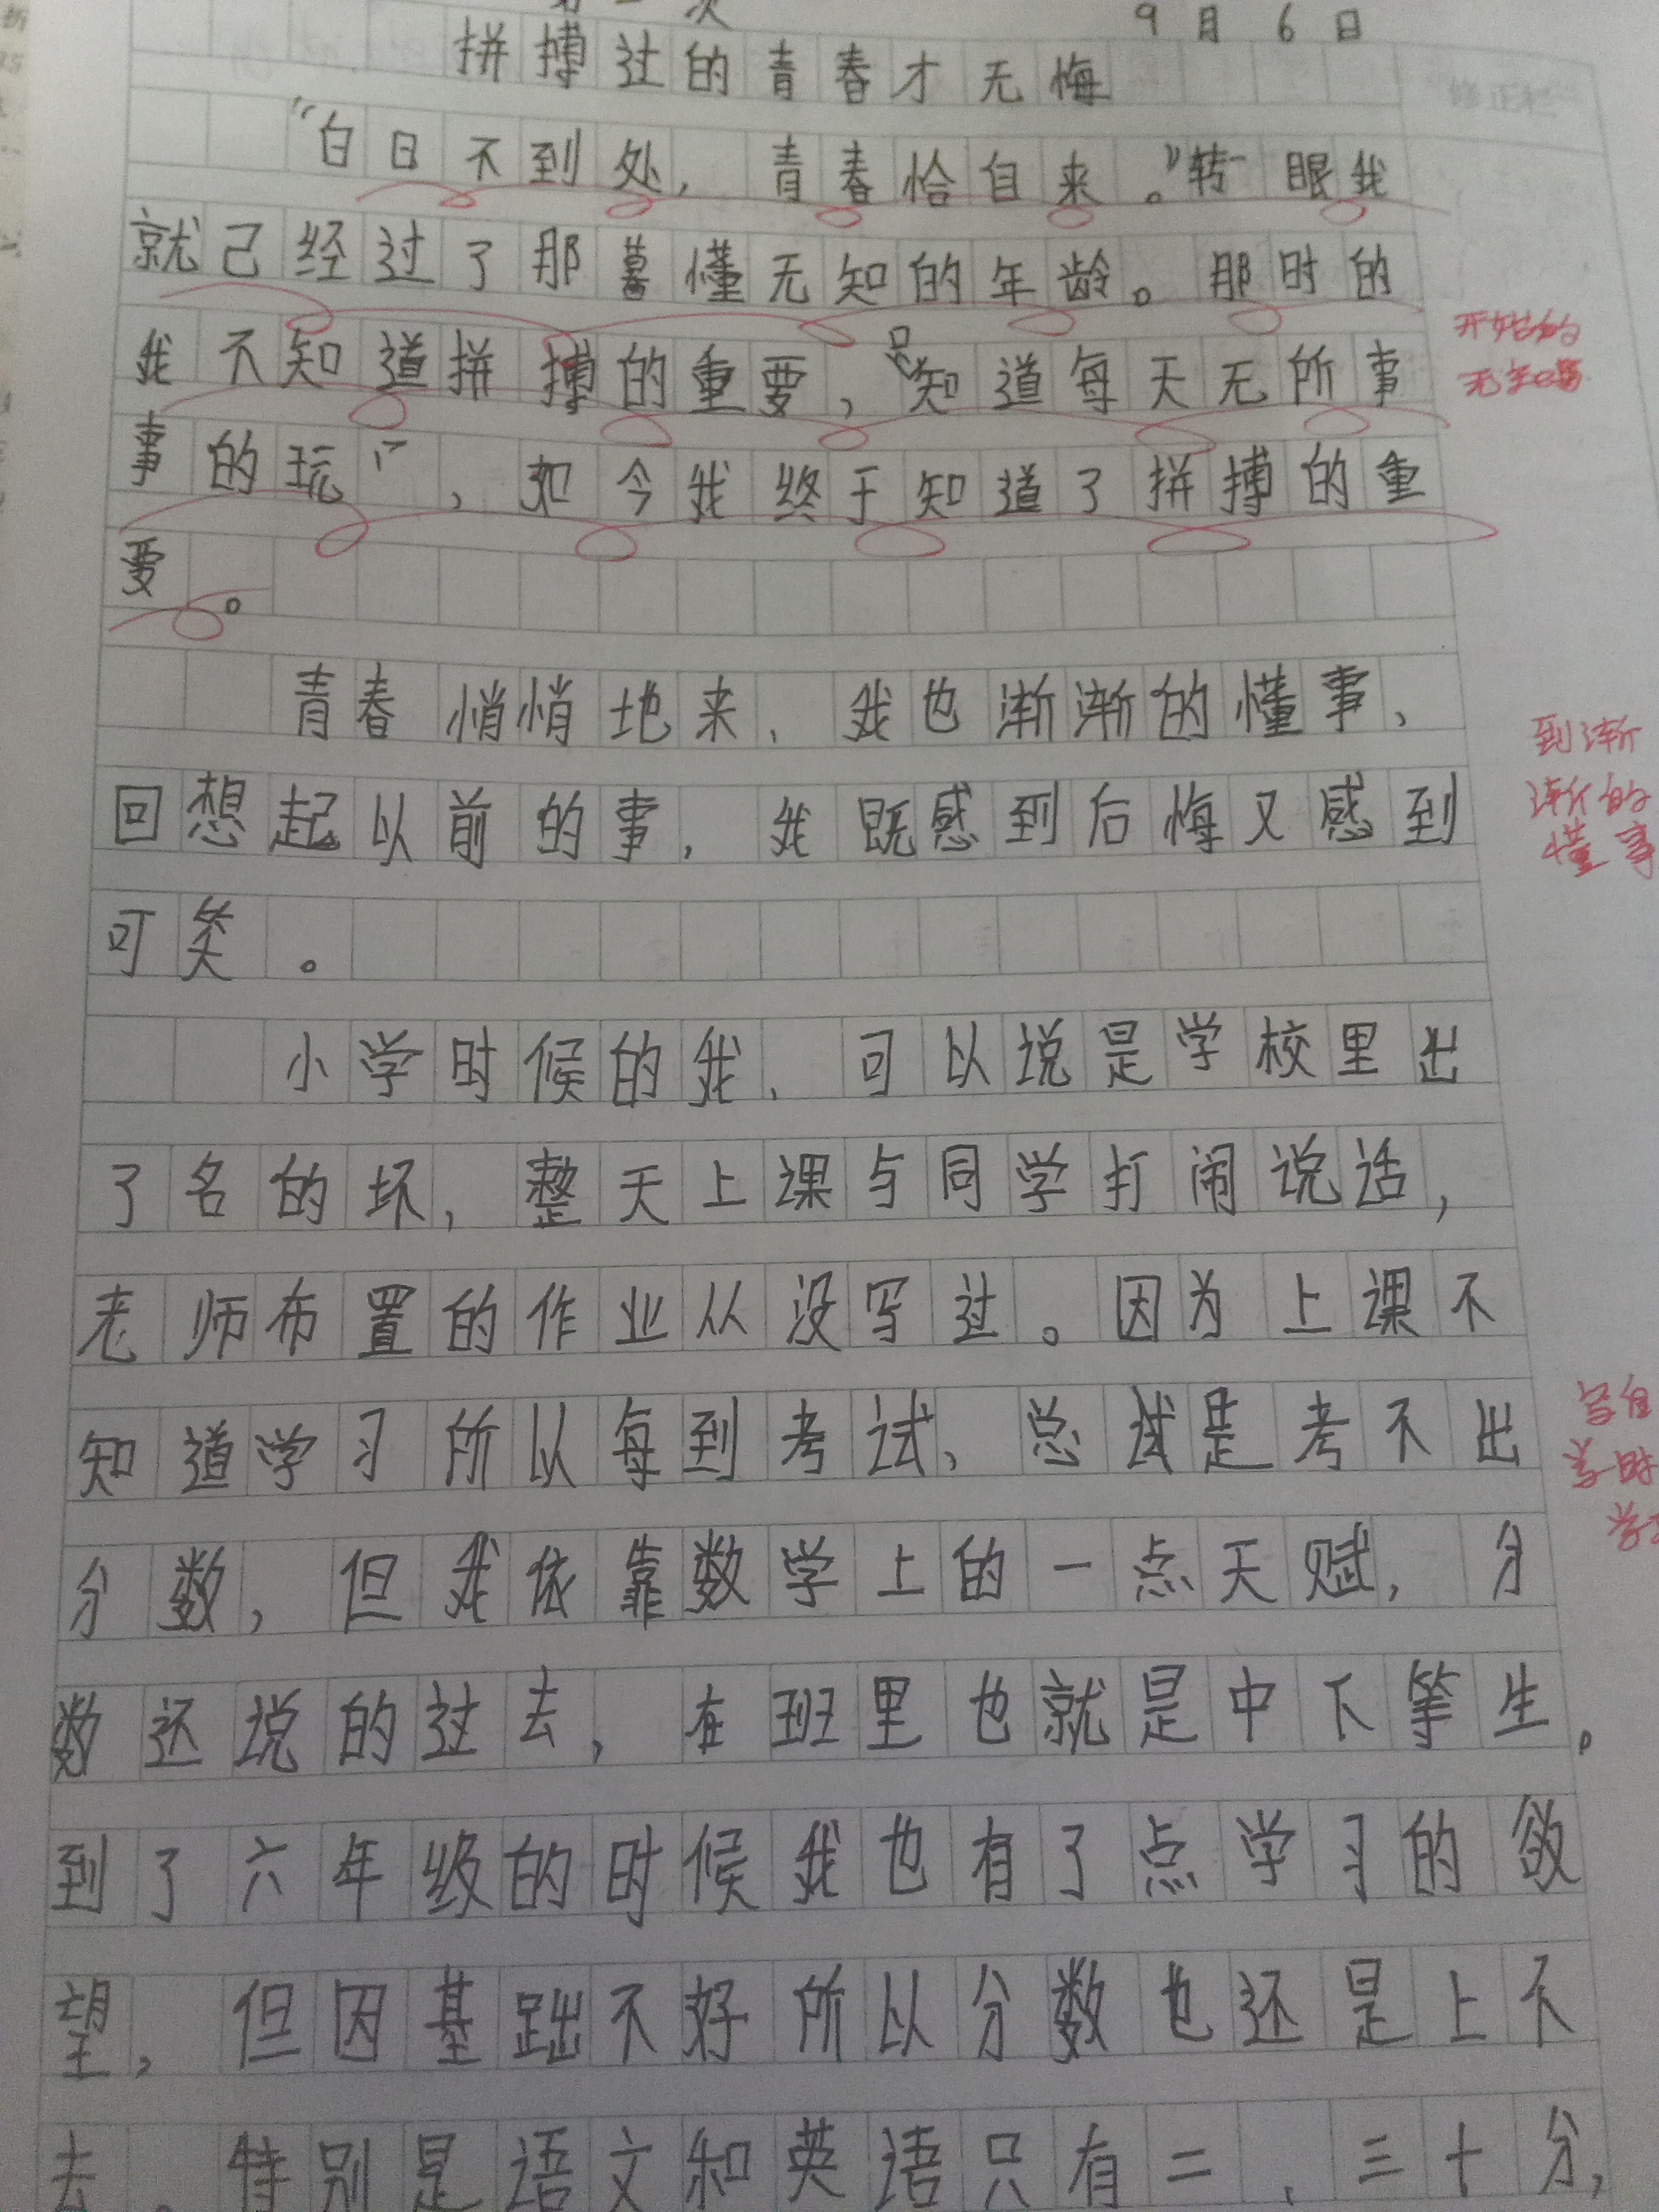 9月6日
拼搏过的青春才无悔
“白日不到处，青春恰自来。”转眼我
就已经过了那懵懂无知的年龄。那时的
我不知道拼搏的重要，只知道每天无所事
开始的
无知
事的玩，如今我终于知道了拼搏的重
要。
青春悄悄地来，我也渐渐的懂事、
到渐
渐的
懂事
回想起以前的事，我既感到后悔又感到
可笑。
小学时候的我，可以说是学校里出
了名的坏，整天上课与同学打闹说话，
老师布置的作业从没写过。因为上课不
知道学习所以每到考试、总是考不出
分数，但我依靠数学上的一点天赋，分
数还说的过去，在班里也就是中下等生。
到了六年级的时候我也有了点学习的欲
望，但因基础不好所以分数也还是上不
去。特别是语文和英语只有二、三十分，